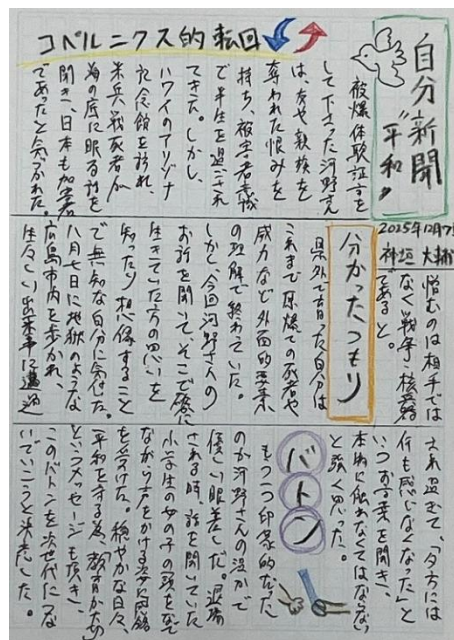 自分新聞
"平和"
2025年12月7日
神垣 大輔
コペルニクス的転回
被爆体験証言を
して下さった河野さん
は、友や親族を
奪われた恨みを
持ち、被害者意識
で半生を過ごされ
てきた。しかし、
ハワイのアリゾナ
記念館を訪れ、
米兵戦死者が
海の底に眠る話を
聞き、日本も加害者
であったと気づかれた。
憎むのは相手では
なく戦争・核兵器
であると。
分かったつもり
県外で育った自分は
これまで原爆での死者や
威力など外面的要素
の理解で終わっていた。
しかし今回河野さんの
お話を聞いて、そこで確かに
生きていた方の思いを
知ったり想像すること
で無知な自分に気付いた。
八月七日に地獄のような
広島市内を歩かれ、
生々しい出来事に遭遇
され過ぎて、「夕方には
何も感じなくなった」と
いう言葉を聞き、
本物に触れなくてはならない
と強く思った。
バトン
もう一つ印象的だった
のが河野さんの温かで
優しい眼差しだ。退場
される時、話を聞いていた
小学生の女の子の頭をなで
ながら声をかける姿に感銘
を受けた。穏やかな日々、
平和を守る為、「教育が大切」
というメッセージも頂き、
このバトンを次世代につな
いでいこうと決意した。